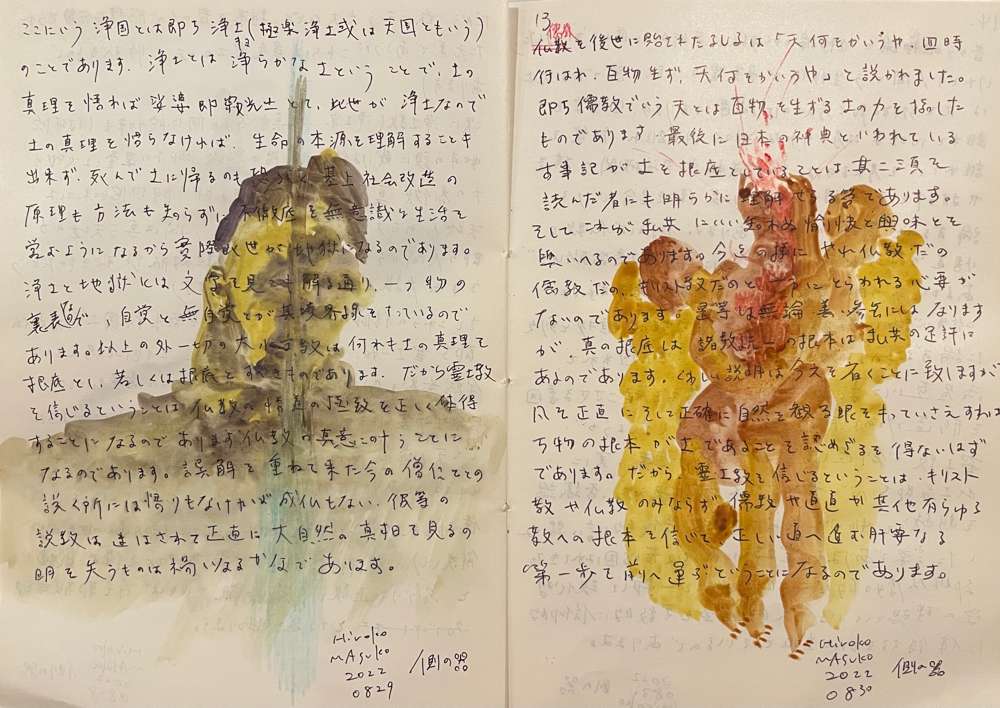 ここにいう浄国とは即ち浄土(極楽浄土或は天国ともいう)
のことであります。浄土とは浄らかな土ということで、土の
真理を悟れば娑婆即寂光土とて、此世が浄土なので
土の真理を悟らなければ、生命の本源を理解することも
出来ず、死んで土に帰るのも 基上社会改造の
原理も方法も知らずに不徹底を無意識な生活を
営むようになるから実際此世が地獄になるのであります。
浄土と地獄とは文字で見ても解る通り、一つ物の
裏表で、自覚と無自覚とが其境界線をなしているので
あります。以上の外一切の大小宗教は何れも土の真理を
根底とし、若しくは根底とすべきものであります。だから霊土教
を信じるということは仏教の悟道の極致を正しく体得
することになるのであります仏教の真意に叶うことに
なるのであります。誤解を重ねて来た今の僧侶などの
説く所には悟りもなければ成仏もない、彼等の
説教は迷はされて正直に大自然の真相を見るの
明を失うものは禍いなるかなであります。
Hiroko
mAsuko
2022
0829
側の器
13
儒教
仏教を後世に貽されたるしるは「天何をかいうや、四時
行はれ、百物生ず、天何をかいうや」と説かれました。
即ち儒教でいう天とは百物を生ずる土の力を指した
ものであります 最後に日本の神典といわれている
古事記が土を根底としていることは其二三項を
読んだ者にも明らかに理解せる筈であります。
そしてこれが私共にいい 愉快と興味とを
与いへるのであります。今迄の様にやれ仏教だの
儒教だの、キリスト教だのと一方にとらわれる必要が
ないのであります。是等は無論善い参考にはなります
が、真の根底は 諸教統一の根本は私共の足許に
あるのであります。くわしい説明は今之を省くことに致しますが
凡そ正直にそして正確に自然を観る眼をもっていさえすれば
ち物の根本が土であることを認めざるを得ないはず
であります。だから霊土教を信じるということは、キリスト
教や仏教のみならず、儒教や道 其他有らゆる
教への根本を信じて、正しい道へ進む肝要なる
第一歩を前へ運ぶということになるのであります。
Hiroko
mAsuko
2022
0830
側の器